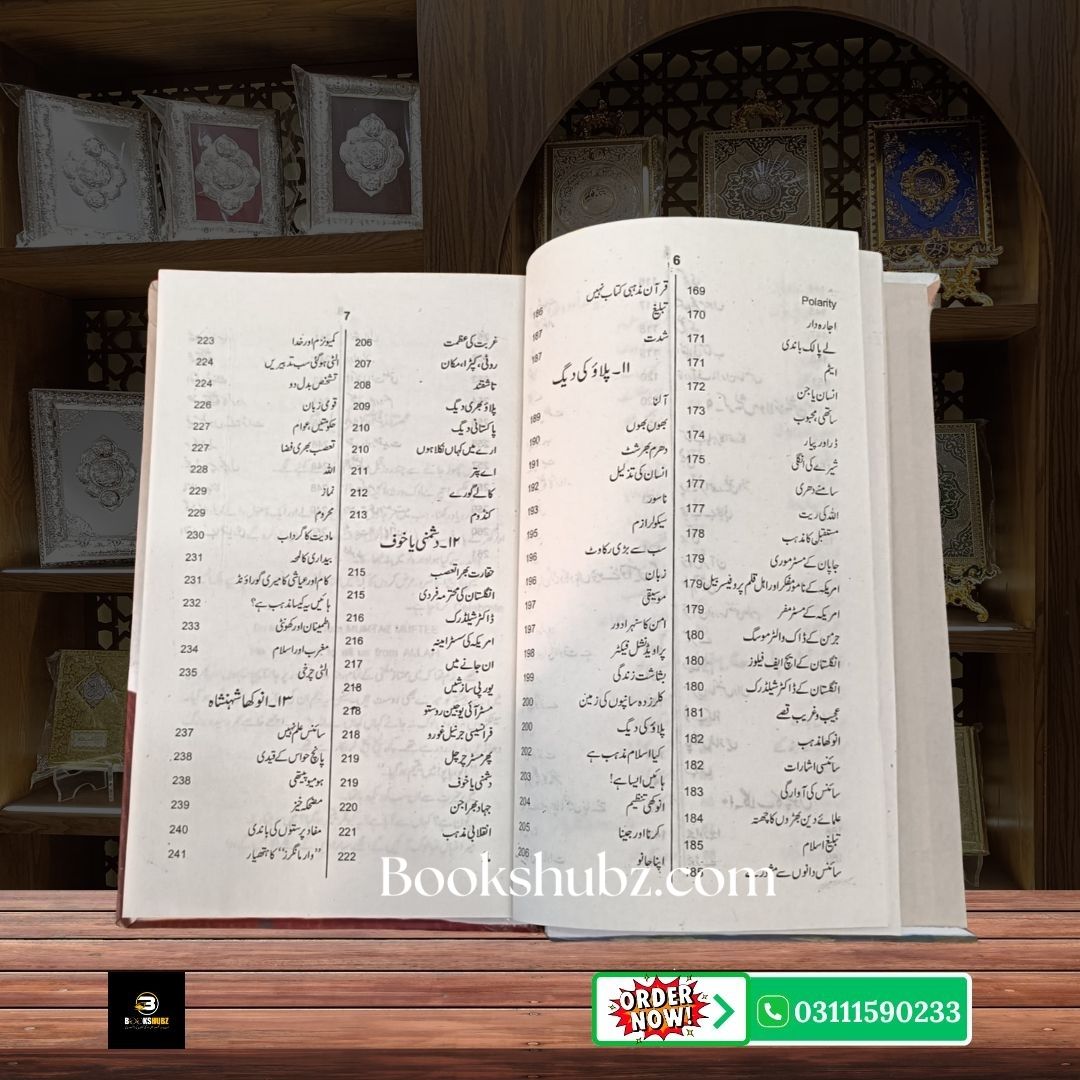 6
Polarity 169
اجارہ دار 170
لے پالک باندی 171
ایٹم 171
انسان یا جن 172
ساتھی، محبوب 173
ڈر اور پیار 174
شیرے کی انگلی 175
سامنے دھری 177
اللہ کی ریت 177
مستقبل کا مذہب 178
جاپان کے مسٹر موری 179
امریکہ کے نامور مفکر اور اہل قلم پروفیسر بیل 179
امریکہ کے مسٹر مفر 179
جرمن کے ڈاک والٹر موسگ 180
انگلستان کے ایچ ایف فیلوز 180
انگلستان کے ڈاکٹر شیلڈرک 180
عجیب و غریب قصے 181
انوکھا مذہب 182
سائنسی اشارات 182
سائنس کی آوارگی 183
علمائے دین بھڑوں کا چھتہ 184
تبلیغ اسلام 185
سائنس دانوں سے 186
قرآن مذہبی کتاب نہیں 186
تبلیغ 187
شدت 187
۱۱۔ پلاؤ کی دیگ
آلنا 189
بھوں بھوں 190
دھرم بھرشٹ 191
انسان کی تذلیل 192
ناسور 193
سیکولرازم 195
سب سے بڑی رکاوٹ 196
زبان 196
موسیقی 197
امن کا سنہرا دور 197
پراویڈنشل فیکٹر 198
بشاشت زندگی 199
کلر زدہ سانپوں کی زمین 200
پلاؤ کی دیگ 200
کیا اسلام مذہب ہے 202
ہائیں ایسا ہے! 203
انوکھی تنظیم 204
اکرنا اور جینا 205
اپنا جانو 206
7
غربت کی عظمت 206
روٹی، کپڑا، مکان 207
تاشقند 208
پلاؤ بھری دیگ 209
پاکستانی دیگ 210
ارے میں کہاں نکلا ہوں 210
اے پتر 211
کالے گورے 212
کنڈوم 213
۱۲۔ دشمنی یا خوف
حقارت بھرا تعصب 215
انگلستان کی محترمہ فردی 215
ڈاکٹر شیلڈرک 216
امریکہ کی مسز امینہ 216
ان جانے میں 217
یورپی سازشیں 218
مسٹر آئی یوجین روستو 218
فرانسیسی جرنیل غورو 218
پھر مسٹر چرچل 219
دشمنی یا خوف 219
جہاد بھرا جن 220
انقلابی مذہب 221
222
کمیونزم اور خدا 223
الٹی ہو گئی سب تدبیریں 224
تشخص بدل دو 224
قومی زبان 226
حکومتیں، عوام 227
تعصب بھری فضا 227
اللہ 228
نماز 229
محروم 229
مادیت کا گرداب 230
بیداری کا لمحہ 231
کام اور عیاشی کا میری گوراؤنڈ 231
ہائیں یہ کیسا مذہب ہے؟ 232
اطمینان اور کھونٹی 233
مغرب اور اسلام 234
الٹی چرخی 235
۱۳۔ انوکھا شہنشاہ
سائنس علم نہیں 237
پانچ حواس کے قیدی 238
ہومیوپیتھی 238
مضحکہ خیز 239
مفاد پرستوں کی باندی 240
”وار مانگرز“ کا ہتھیار 241
Bookshubz.com
B
BOOKSHUBZ
ORDER NOW!
03111590233